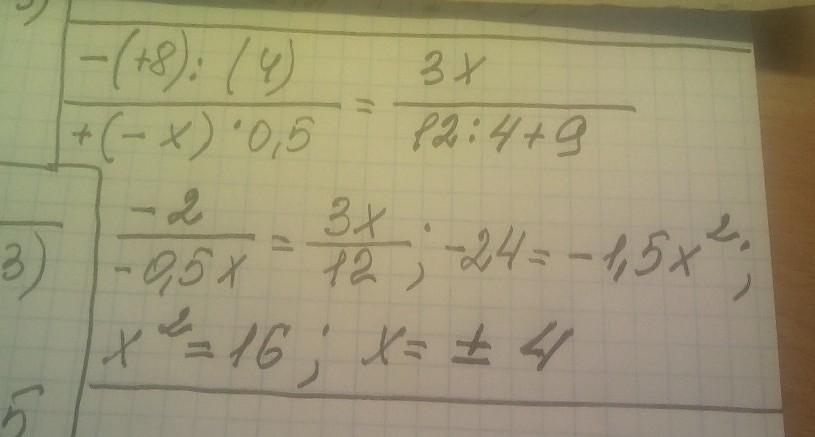 -(+8):(4) / +(-x)·0,5 = 3x / 12:4+9
-2 / -0,5x = 3x / 12; -24 = -1,5x²;
x² = 16; x = ± 4
3)
5